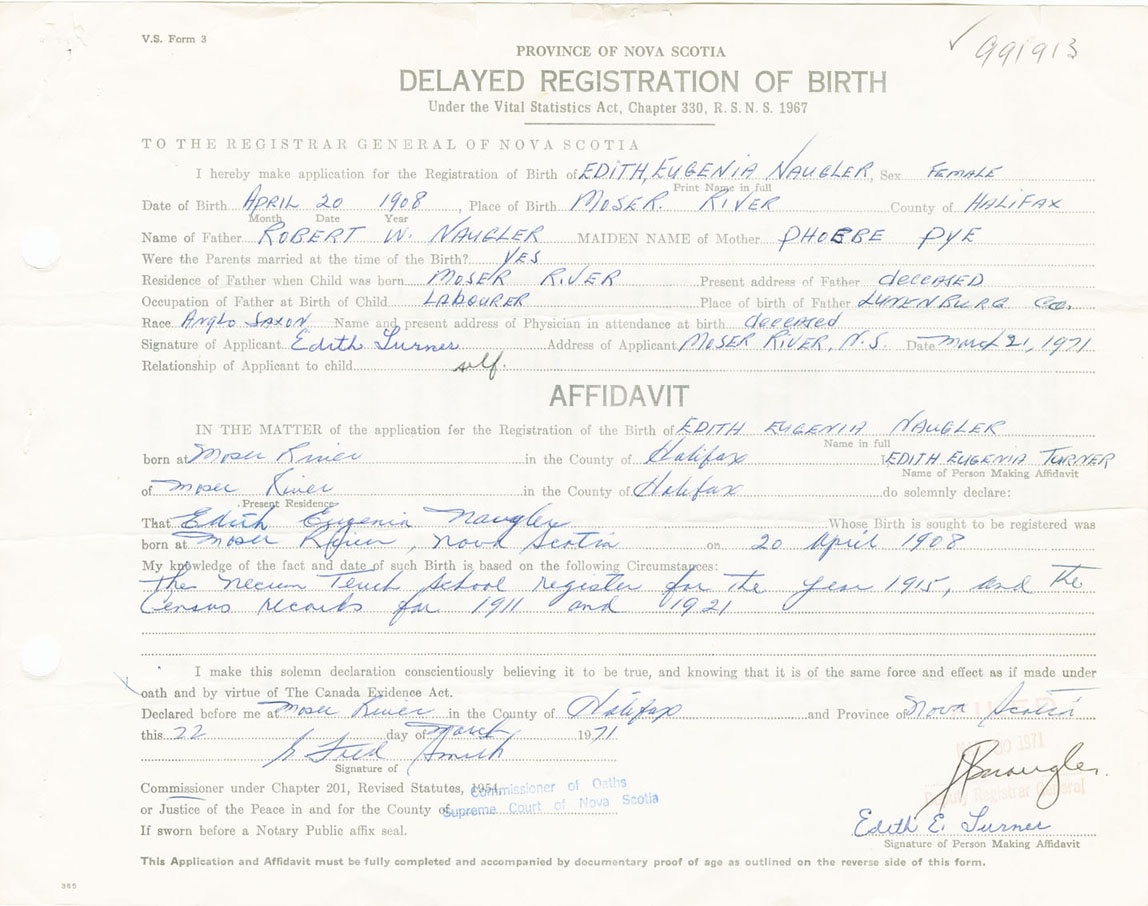 V.S. Form 3
991913
PROVINCE OF NOVA SCOTIA
DELAYED REGISTRATION OF BIRTH
Under the Vital Statistics Act, Chapter 330, R.S.N.S. 1967
TO THE REGISTRAR GENERAL OF NOVA SCOTIA
I hereby make application for the Registration of Birth of EDITH, EUGENIA NAUGLER, Sex FEMALE
Print Name in full
Date of Birth APRIL 20 1908, Place of Birth MOSER RIVER County of HALIFAX
Month Date Year
Name of Father ROBERT W. NAUGLER MAIDEN NAME of Mother PHOEBE PYE
Were the Parents married at the time of the Birth? YES
Residence of Father when Child was born MOSER RIVER Present address of Father deceased
Occupation of Father at Birth of Child LABOURER Place of birth of Father LUNENBURG Co.
Race Anglo Saxon Name and present address of Physician in attendance at birth deceased
Signature of Applicant Edith Turner Address of Applicant MOSER RIVER, N.S. Date March 21, 1971
Relationship of Applicant to child self.
AFFIDAVIT
IN THE MATTER of the application for the Registration of the Birth of EDITH EUGENIA NAUGLER
Name in full
born at Moser River in the County of Halifax I, EDITH EUGENIA TURNER
Name of Person Making Affidavit
of Moser River in the County of Halifax do solemnly declare:
Present Residence
That Edith Eugenia Naugler Whose Birth is sought to be registered was
born at Moser River, Nova Scotia on 20 April 1908
My knowledge of the fact and date of such Birth is based on the following Circumstances:
The Necum Teuch School register for the year 1915, and the
Census records for 1911 and 1921
I make this solemn declaration conscientiously believing it to be true, and knowing that it is of the same force and effect as if made under
oath and by virtue of The Canada Evidence Act.
Declared before me at Moser River in the County of Halifax and Province of Nova Scotia
this 22 day of March 1971
Fred Smith
Signature of
1971
Naugler
Deputy Registrar General
Commissioner under Chapter 201, Revised Statutes, 1954,
Commissioner of Oaths
or Justice of the Peace in and for the County of
Supreme Court of Nova Scotia
If sworn before a Notary Public affix seal.
Edith E. Turner
Signature of Person Making Affidavit
This Application and Affidavit must be fully completed and accompanied by documentary proof of age as outlined on the reverse side of this form.
385